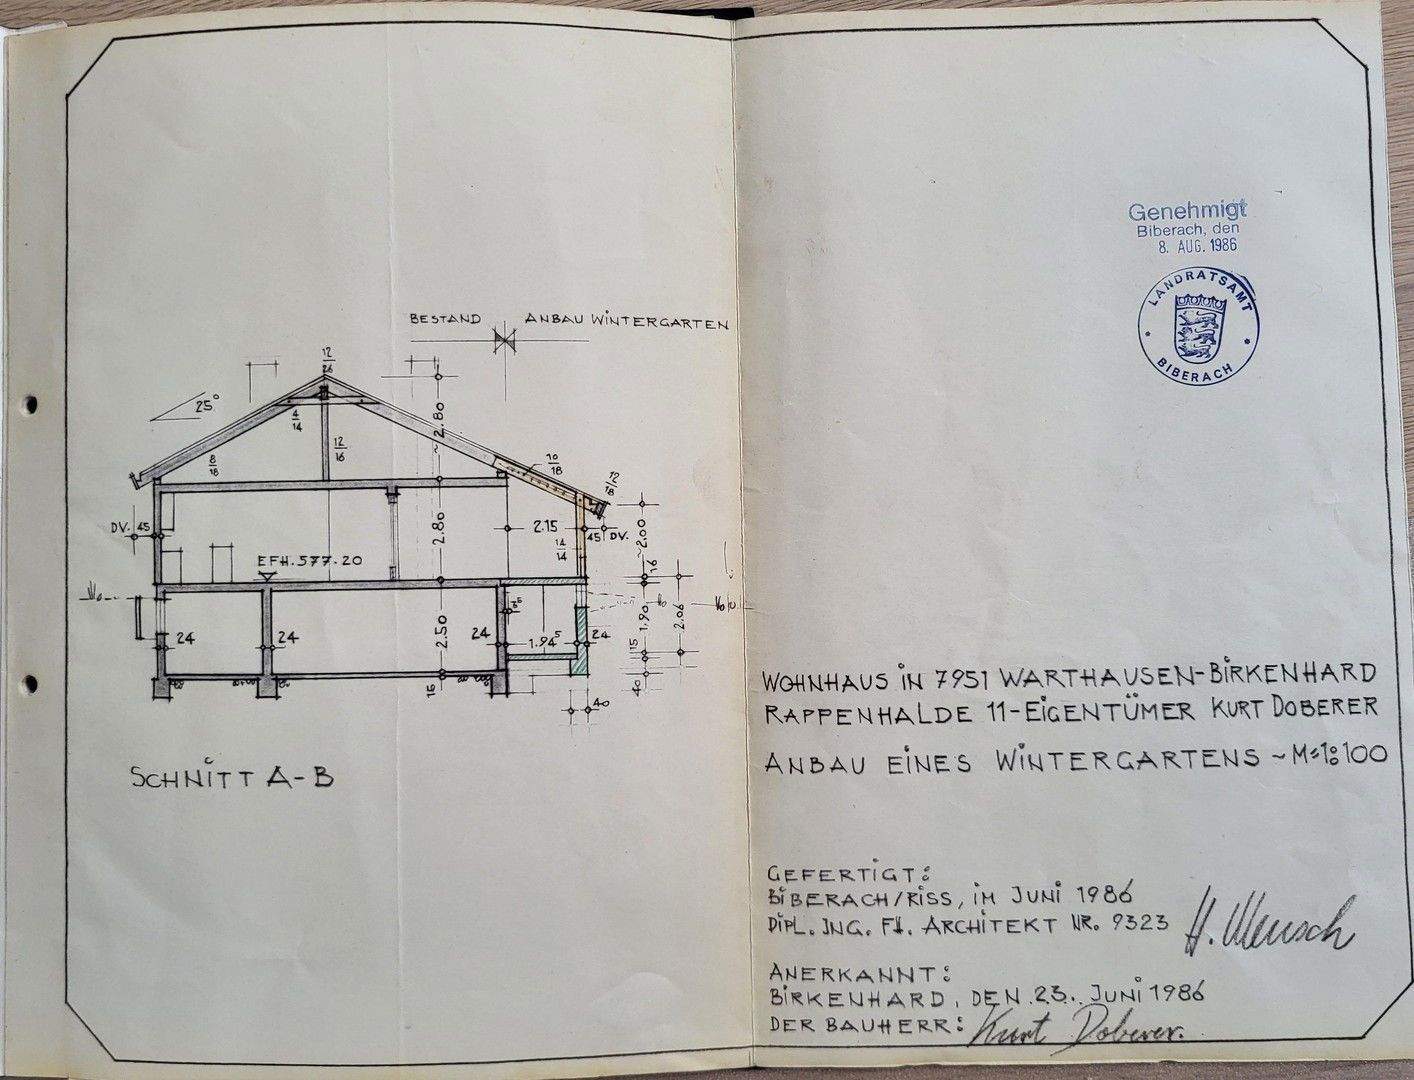 BESTAND ANBAU WINTERGARTEN
12
26
25°
4
14
12
16
8
18
~ 2.80
10
18
12
18
DV. 45
2.80
2.15
45 DV.
14
14
~2.00
16
EFH. 577.20
24
24
2.50
24
1.94⁵
24
1.90
2.06
15
40
15
40
SCHNITT A-B
Genehmigt
Biberach, den
8. AUG. 1986
LANDRATSAMT
BIBERACH
WOHNHAUS IN 7951 WARTHAUSEN-BIRKENHARD
RAPPENHALDE 11-EIGENTÜMER KURT DOBERER
ANBAU EINES WINTERGARTENS ~ M=1:100
GEFERTIGT:
BIBERACH/RISS, IM JUNI 1986
DIPL. ING. FH. ARCHITEKT NR. 9323 H. Mensch
ANERKANNT:
BIRKENHARD, DEN 23. JUNI 1986
DER BAUHERR: Kurt Doberer.